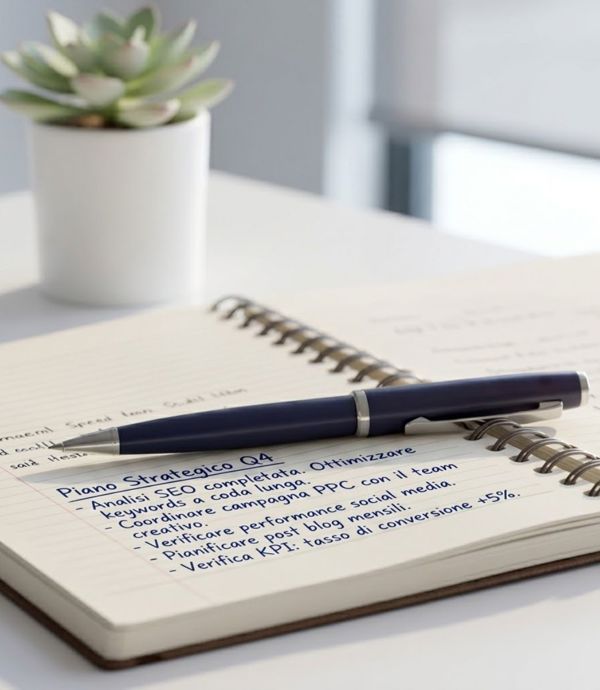 Piano Strategico Q4
- Analisi SEO completata. Ottimizzare
keywords a coda lunga.
- Coordinare campagna PPC con il team
creativo.
- Verificare performance social media.
- Pianificare post blog mensili.
- Verifica KPI: tasso di conversione +5%.